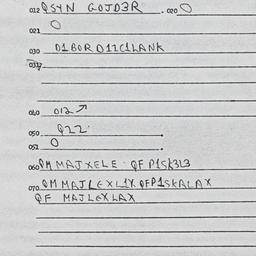 012 QSYN GOJD3R . 020 O
021 O
030 D1BOR D12C1LANK
031
060 012 ↗
050 Q22
051 O
060 QM MAJXELE QF P1SK3L3
070 QM MAJLEXL1X QFP1SKALAX
QF MAJLEXLAX